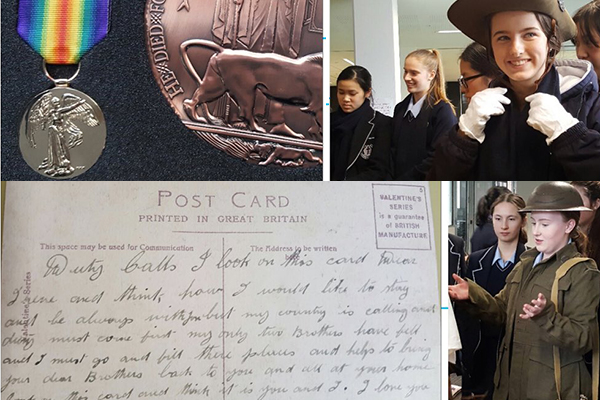 HE DIED
POST CARD
PRINTED IN GREAT BRITAIN
VALENTINE'S
SERIES
is a guarantee
of BRITISH
MANUFACTURE
This space may be used for Communication
The Address to be written
Duty Calls I look on this card Dear
I and think how I would like to stay
and be always with but my country is calling and
duty must come first my only two Brothers have fell
and I must go and fill there and helps to bring
your dear Brothers back to you and all at your home
this card and think it is you and I. I love you